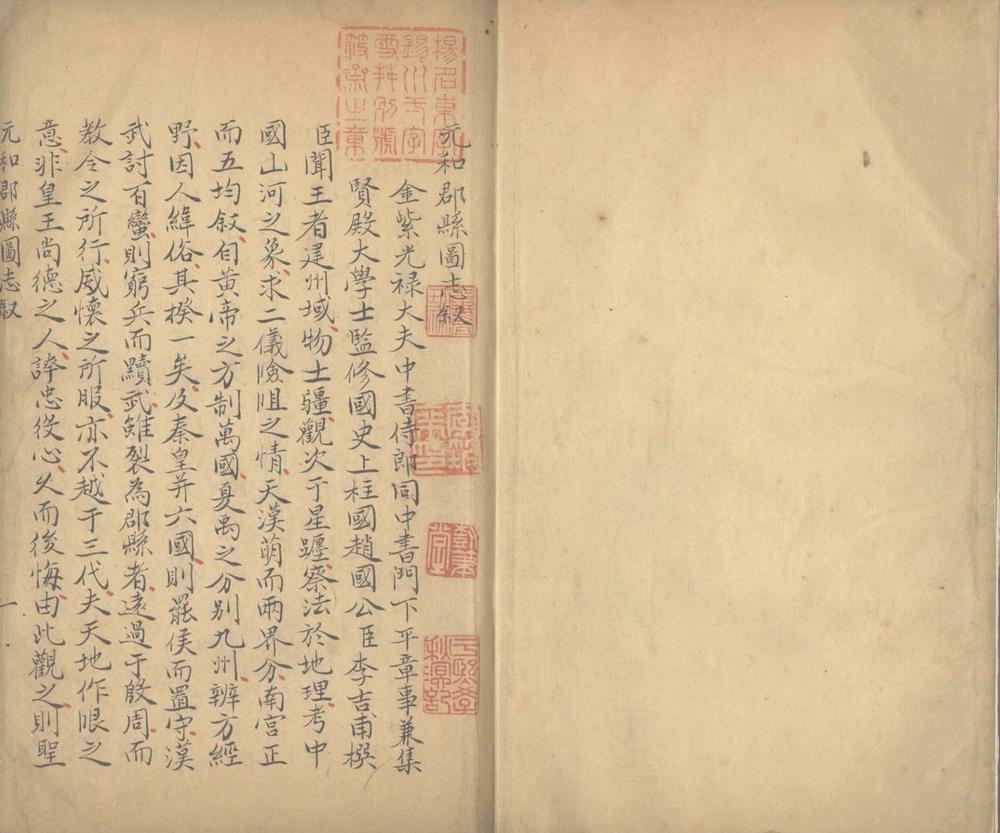 元和郡縣圖志叙
金紫光禄大夫中書侍郎同中書門下平章事兼集
賢殿大學士監修國史上柱國趙國公臣李吉甫撰
臣聞王者建州域物土疆觀次于星躔察法於地理考中
國山河之象求二儀險阻之情天漢萌而兩界分南宫正
而五均叙自黄帝之方制萬國夏禹之分别九州辨方經
野因人緯俗其揆一矣及秦皇并六國則罷侯而置守漢
武討百蠻則窮兵而黷武雖裂為郡縣者遠過于殷周而
教令之所行威懷之所服亦不越于三代夫天地作限之
意非皇王尚德之人誶忠役心久而後悔由此觀之則聖
元和郡縣圖志叙
一